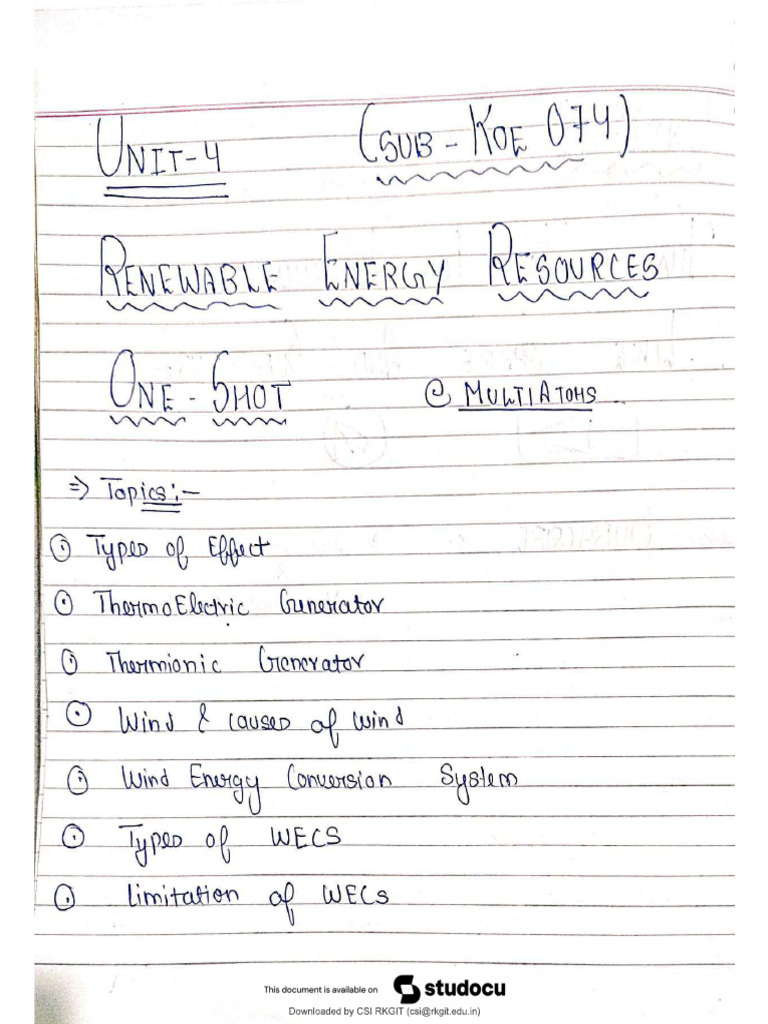 UNIT-4 (SUB - KOE 074)
RENEWABLE ENERGY RESOURCES
ONE - SHOT @ MULTIATOMS
⇒ Topics:-
⊙ Types of Effect
⊙ ThermoElectric Generator
⊙ Thermionic Generator
⊙ Wind & causes of wind
⊙ Wind Energy Conversion System
⊙ Types of WECS
⊙ Limitation of WECs
This document is available on studocu
Downloaded by CSI RKGIT (csi@rkgit.edu.in)